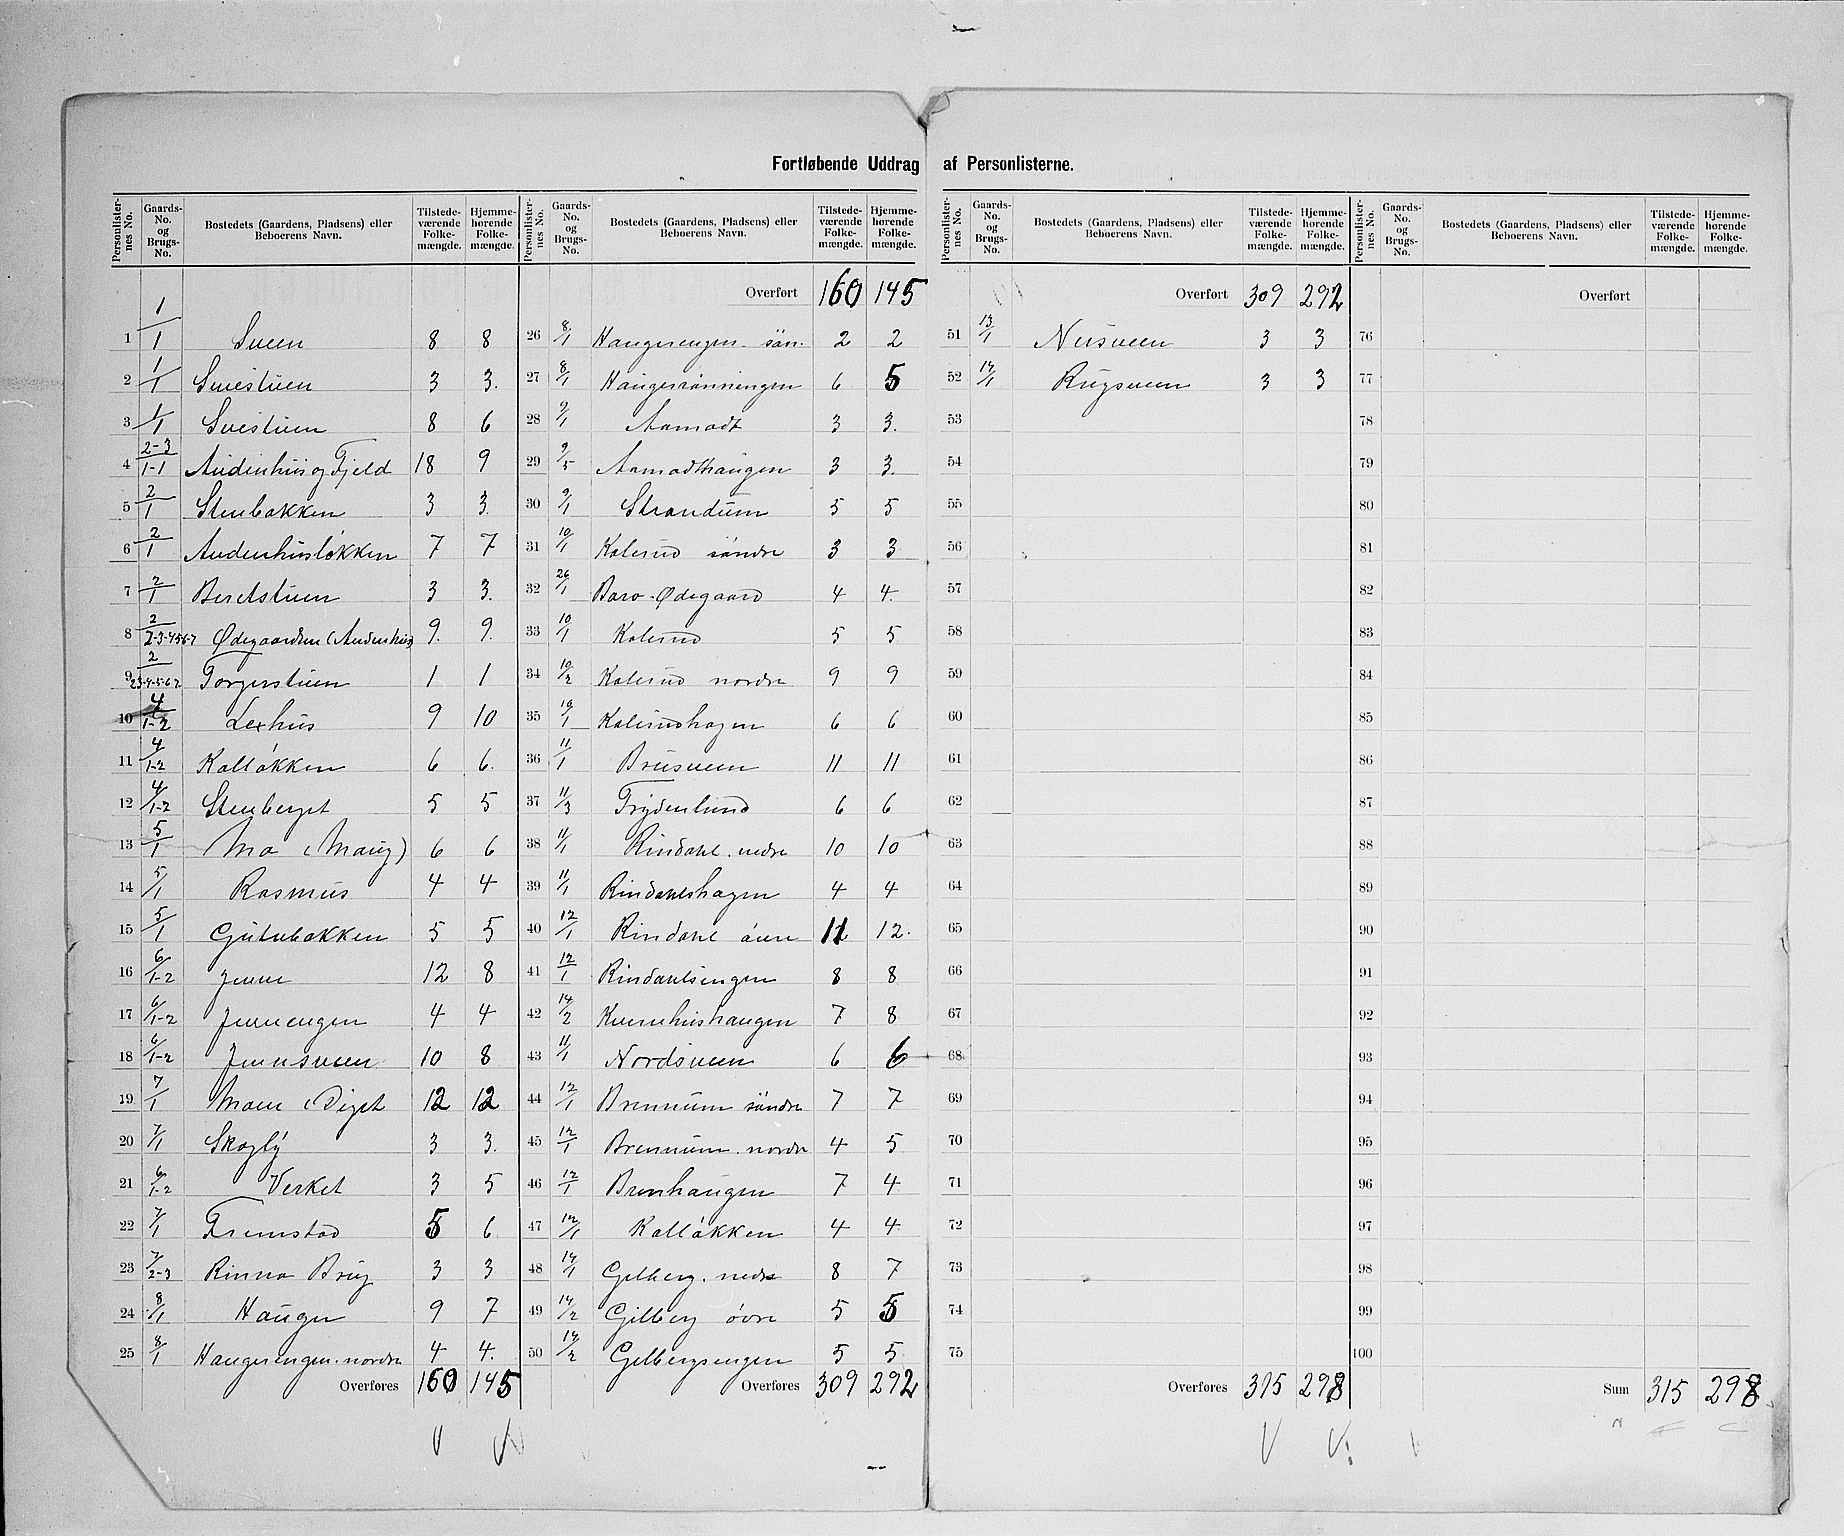 Fortløbende Uddrag af Personlisterne.
Personlister-nes No. | Gaards-No. og Brugs-No. | Bostedets (Gaardens, Pladsens) eller Beboerens Navn. | Tilstede-værende Folke-mængde. | Hjemme-hørende Folke-mængde.
1 1/1 Sveen 8 8
2 1/1 Sveistuen 3 3.
3 1/1 Sveistuen 8 6
4 2-3/1-1 Audenhus og Fjeld 18 9
5 2/1 Stenbakken 3 3.
6 2/1 Audenhusløkken 7 7
7 2/1 Beretstuen 3 3.
8 2/2-3-4-5-6-7 Ødegaarden (Audenhus) 9. 9.
9 2/2-3-4-5-6-7 Torgerstuen 1 1
10 4/1-2 Lexhus 9 10
11 4/1-2 Kalløkken 6 6.
12 4/1-2 Stenberget 5 5
13 5/1 Mo (Maug) 6 6
14 5/1 Rasmus 4 4
15 5/1 Gutubakken 5 5
16 6/1-2 Jevne 12 8
17 6/1-2 Jevneengen 4 4
18 6/1-2 Jevnesveen 10 8
19 7/1 Moen (Diget 12 12
20 7/1 Skogly 3 3.
21 6/1-2 Verket 3 5
22 7/1 Fremstad 5 6
23 7/2-3 Rinna Brug 3 3
24 8/1 Haugen 9 7
25 8/1 Haugerengen. nordre 4 4.
Overføres 160 145
Personlister-nes No. | Gaards-No. og Brugs-No. | Bostedets (Gaardens, Pladsens) eller Beboerens Navn. | Tilstede-værende Folke-mængde. | Hjemme-hørende Folke-mængde.
Overført 160 145
26 8/1 Haugerengen søn. 2 2
27 8/1 Haugerrønningen 6 5
28 9/1 Aamodt 3 3.
29 9/5 Aamodthaugen 3 3.
30 9/1 Strandum 5 5
31 10/1 Kolerud søndre 3 3
32 26/1 Baro-Ødegaard 4 4.
33 10/1 Kolerud 5 5
34 10/2 Kolerud nordre 9 9
35 10/1 Kolerudhagen 6 6
36 11/1 Brusveen 11 11
37 11/3 Frydenlund 6 6
38 11/1 Rindahl. nedre 10 10
39 11/1 Rindahlshagen 4 4
40 12/1 Rindahl øvre 11 12.
41 12/1 Rindahlsengen 8 8
42 14/2 Kvernhushaugen 7 8
43 11/1 Nordsveen 6 6
44 12/1 Brennum søndre 7 7
45 12/1 Brennum nordre 4 5
46 12/1 Brenhaugen 7 4
47 12/1 Kalløkken 4 4
48 14/1 Gilberg. nedre 8 7
49 14/2 Gilberg øvre 5 5
50 14/2 Gilbergsengen 5 5
Overføres 309 292
Personlister-nes No. | Gaards-No. og Brugs-No. | Bostedets (Gaardens, Pladsens) eller Beboerens Navn. | Tilstede-værende Folke-mængde. | Hjemme-hørende Folke-mængde.
Overført 309 292
51 13/1 Nusveen 3 3
52 14/1 Rugsveen 3 3
53
54
55
56
57
58
59
60
61
62
63
64
65
66
67
68
69
70
71
72
73
74
75
Overføres 315 298
Personlister-nes No. | Gaards-No. og Brugs-No. | Bostedets (Gaardens, Pladsens) eller Beboerens Navn. | Tilstede-værende Folke-mængde. | Hjemme-hørende Folke-mængde.
Overført
76
77
78
79
80
81
82
83
84
85
86
87
88
89
90
91
92
93
94
95
96
97
98
99
100
Sum 315 298